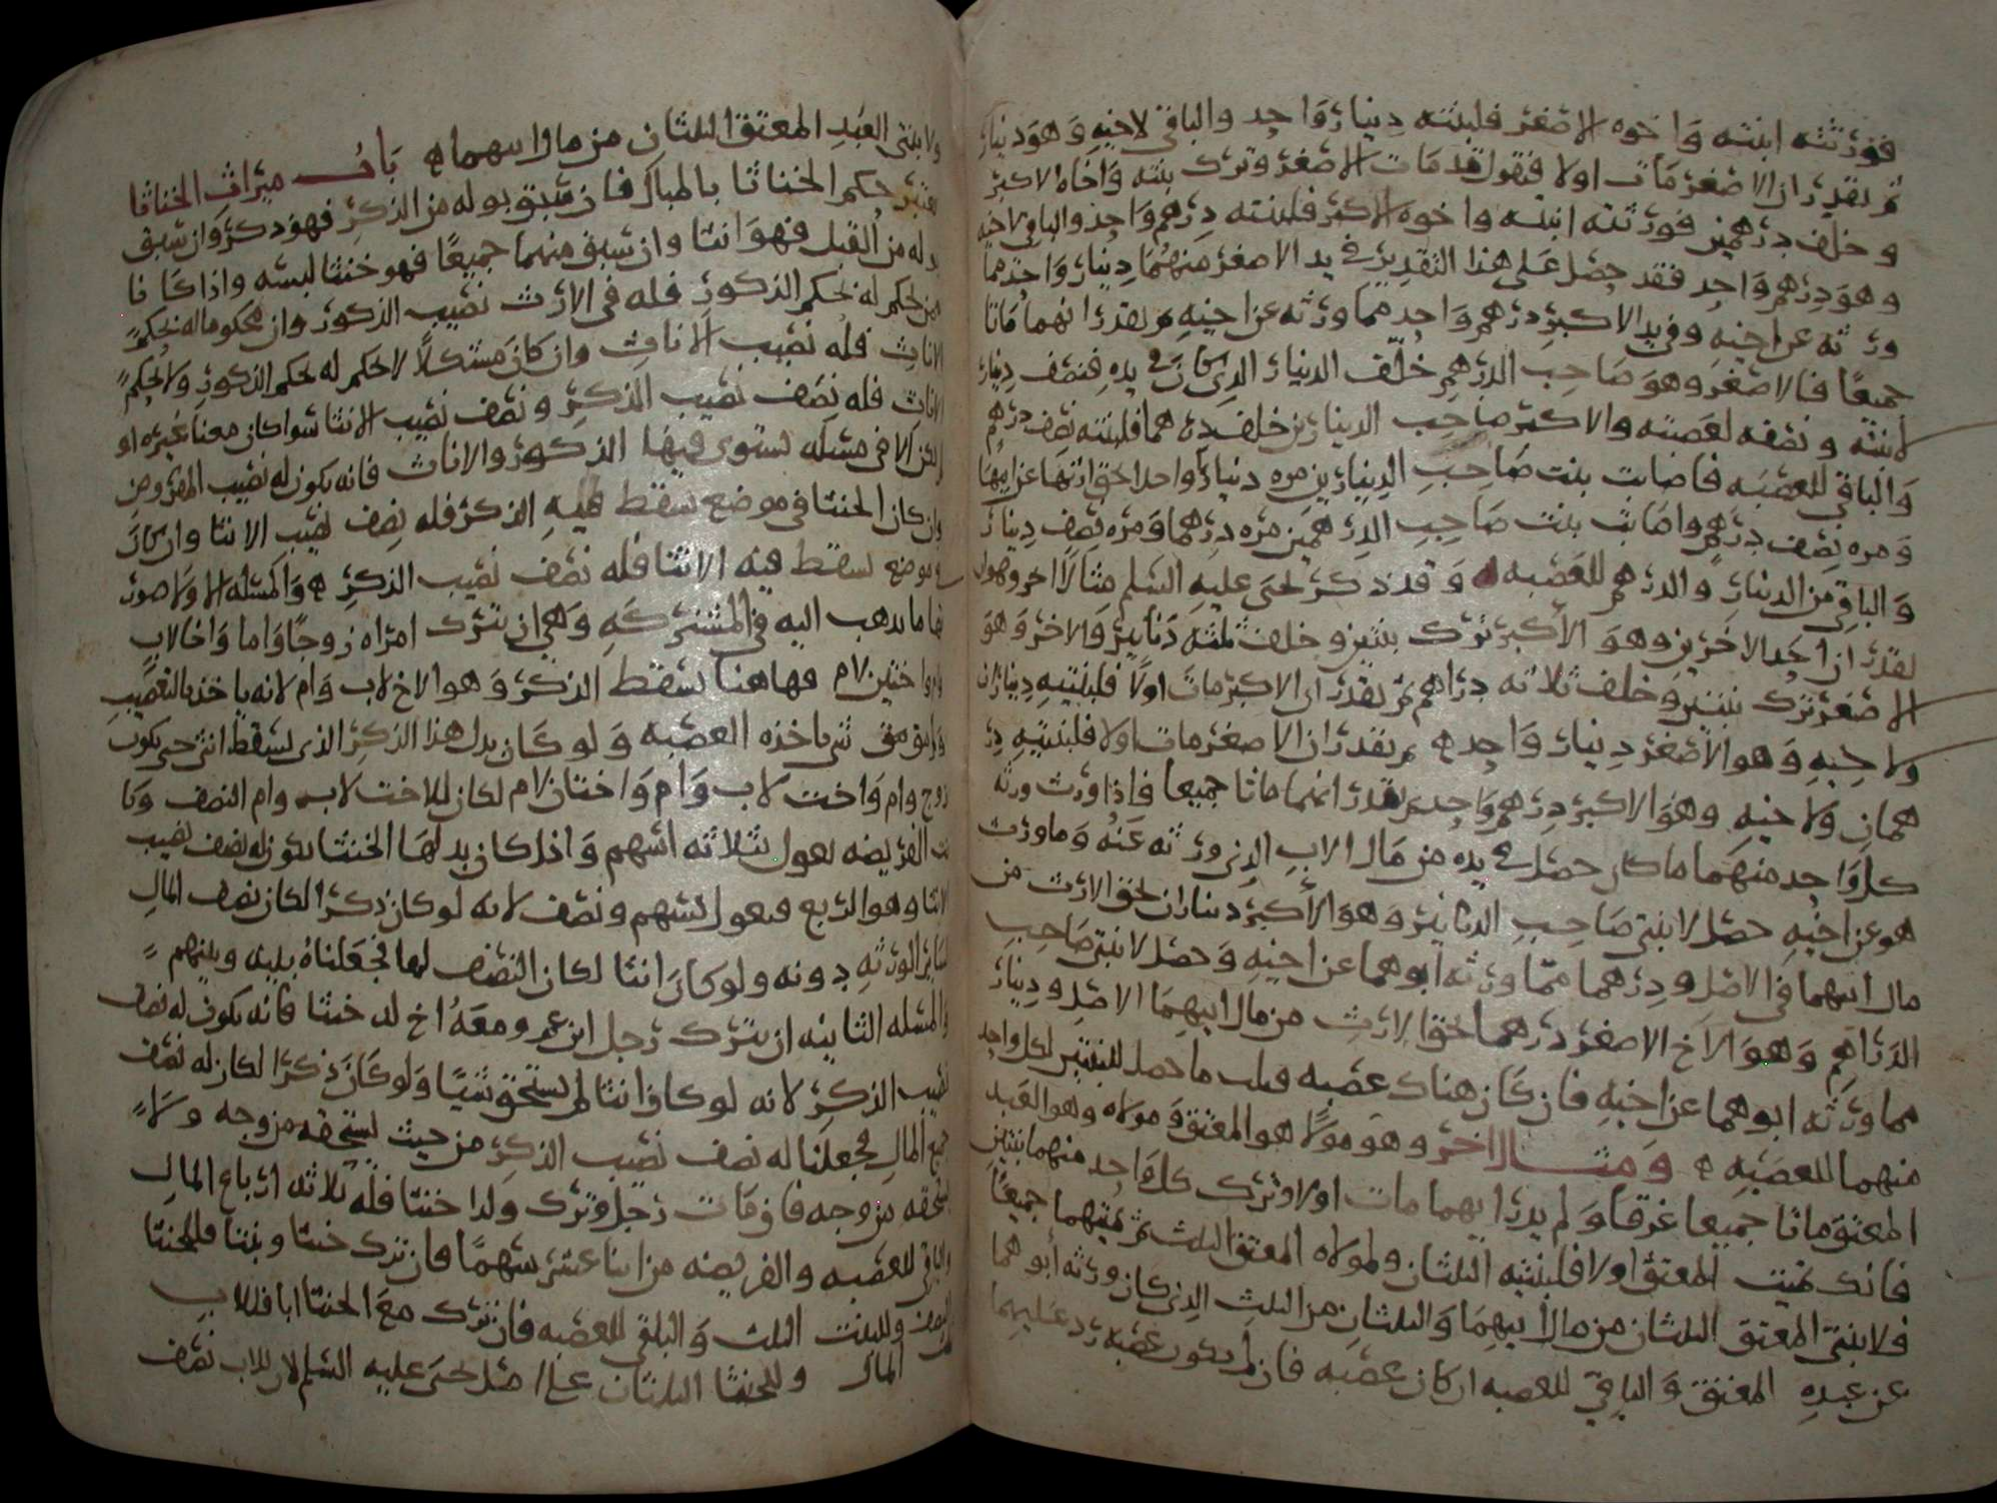 فورثته ابنته واخوه الاصغر فلبنته دينار واحد والباقي لاخيه وهو دينار
ثم نقدر ان الاصغر مات اولا فنقول قد مات الاصغر وترك بنته واخاه الاكبر
وخلف درهمين فورثته ابنته واخوه الاكبر فلبنته درهم واحد والباقي لاخيه
وهو درهم واحد فقد حصل على هذا التقدير في يد الاصغر منهما دينار واحد مما
ورثه عن اخيه وفي يد الاكبر درهم واحد مما ورثه عن اخيه ثم نقدر انهما ماتا
جميعا فالاصغر وهو صاحب الدرهم خلف الدينار الذي كان في يده فنصف دينار
لابنته ونصفه لعصبته والاكبر صاحب الدينارين خلف درهما فلبنته نصف درهم
والباقي للعصبه فاصابت بنت صاحب الدينارين مره دينارا واحدا بحق ارثها عن ابيها
ومره نصف درهم واصابت بنت صاحب الدرهمين مره درهما ومره نصف دينار
والباقي من الدينار والدرهم للعصبه ه وقد ذكر يحيى عليه السلم مثالا اخر وهو ان
نقدر ان احد الاخرين وهو الاكبر ترك بنتين وخلف ثلثه دنانير والاخر وهو
الاصغر ترك بنتين وخلف ثلاثه دراهم ثم نقدر ان الاكبر مات اولا فلبنتيه ديناران
ولاخيه وهو الاصغر دينار واحد ه ثم نقدر ان الاصغر مات اولا فلبنتيه در
همان ولاخيه وهو الاكبر درهم واحد ثم نقدر انهما ماتا جميعا فاذا ورث ورثه
كل واحد منهما ما كان حصل في يده من مال الاب الذي ورثه عنه وما ورث
هو عن اخيه حصل لابنتي صاحب الدنانير وهو الاكبر ديناران بحق الارث من
مال ابيهما في الاصل ودرهما مما ورثه ابوهما عن اخيه وحصل لابنتي صاحب
الدراهم وهو الاخ الاصغر درهما بحق الارث من مال ابيهما الاصل ودينار
مما ورثه ابوهما عن اخيه فان كان هناك عصبه فثلث ما حصل للبنتين لكل واحد
منهما للعصبه ه ومثال اخر وهو مولا هو المعتق ومولاه وهو العبد
المعتق ماتا جميعا غرقا ولم يدر ايهما مات اولا وترك كل واحد منهما بنتين
فانك تميت المعتق اولا فلبنتيه الثلثان ولمولاه المعتق الثلث ثم تميتهما جميعا
فلابنتي المعتق الثلثان من مال ابيهما والثلثان من الثلث الذي كان ورثه ابوهما
عن عبده المعتق والباقي للعصبه ان كان عصبه فان لم يكون عصبه رد عليهما
ولابنتي العبد المعتق الثلثان من مال ابيهما ه باب ميراث الخناثا
يعتبر حكم الخناثا بالمبال فان سبق بوله من الذكر فهو ذكر وان سبق
بوله من القبل فهو انثا وان سبق منهما جميعا فهو خنثا لبسه واذا كان
ممن يحكم له بحكم الذكور فله في الارث نصيب الذكور وان محكوما له بحكم
الاناث فله نصيب الاناث وان كان مشكلا لا يحكم له بحكم الذكور ولا بحكم
الاناث فله نصف نصيب الذكر ونصف نصيب الانثا سوا كان معنا غيره او
لم يكن الا في مسله تستوي فيها الذكور والاناث فانه يكون له نصيب المفروض
وان كان الخنثا في موضع سقط فيه الذكر فله نصف نصيب الانثا وان كان
في موضع يسقط فيه الانثا فله نصف نصيب الذكر ه والمسله الاولا صورتها
ما يذهب اليه في المشتركه وهي ان تترك امراه زوجا واما واخا لاب
وام واختين لام فهاهنا يسقط الذكر وهو الاخ لاب وام لانه ياخذ بالتعصيب
ولم يبق شي ياخذه العصبه ولو كان بدل هذا الذكر الذي يسقط انثى حتى يكون
زوج وام واخت لاب وام واختان لام لكان للاخت لاب وام النصف وكا
نت الفريضه تعول بثلاثه اسهم واذا كان بدلها الخنثا يكون له نصف نصيب
الانثا وهو الربع فيعول بسهم ونصف لانه لو كان ذكرا لكان نصف المال
لسائر الورثه دونه ولو كان انثا لكان النصف لها فجعلناه بينه وبينهم
والمسله الثانيه ان يترك رجل ابن عم ومعه اخ له خنثا فانه يكون له نصف
نصيب الذكر لانه لو كان انثا لم يستحق شيئا ولو كان ذكرا لكان له نصف
جميع المال فجعلنا له نصف نصيب الذكر من حيث يستحقه من وجه ولا
يستحقه من وجه فان مات رجل وترك ولدا خنثا فله ثلاثه ارباع المال
والباقي للعصبه والفريضه من اثنا عشر سهما فان ترك خنثا وبنتا فللخنثا
النصف وللبنت الثلث والباقي للعصبه فان ترك مع الخنثا ابا فللاب
ثلث المال وللخنثا الثلثان على اصل يحيى عليه السلم لان للاب نصف